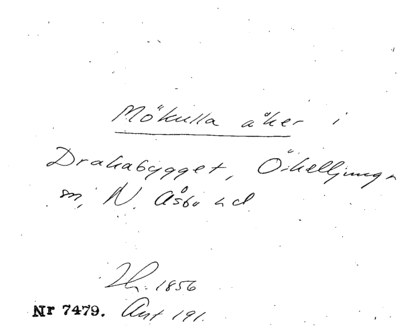 Mökulla åker i
Drakabygget, Örkelljung
sn, N. Åsbo hd
Lh. 1856
Nr 7479. Ant 191.